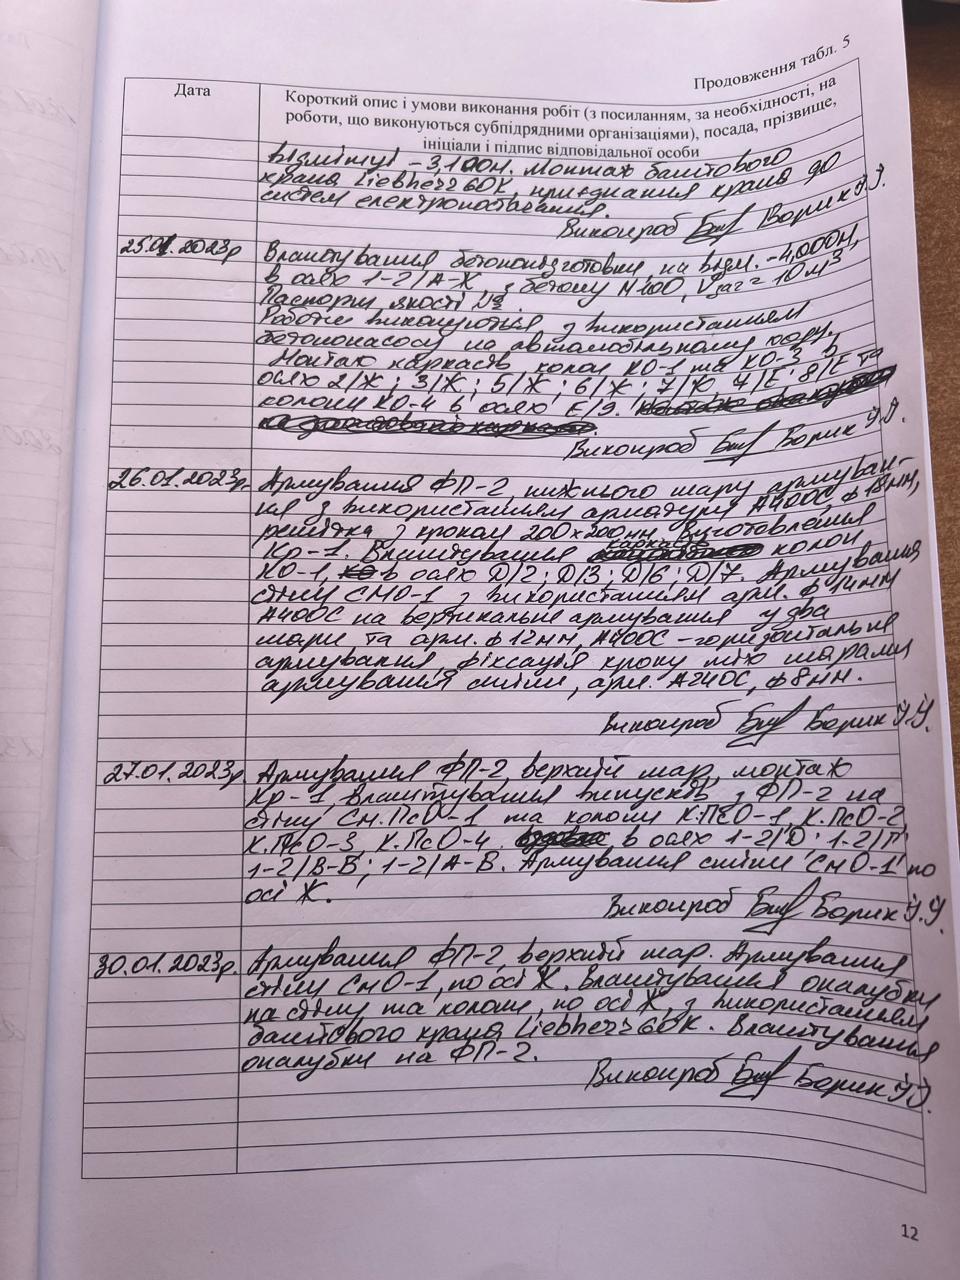 Продовження табл. 5
Дата
Короткий опис і умови виконання робіт (з посиланням, за необхідності, на
роботи, що виконуються субпідрядними організаціями), посада, прізвище,
ініціали і підпис відповідальної особи
відмітці -3,100м. Монтаж баштового
крана Liebherr 60K, приєднання крана до
систем електропостачання.
Виконроб Борик
25.01.2023р
Влаштування бетонопідготовки, на відм. -4,000м,
в осях 1-2/А-Ж, з бетону М100, Vзаг = 10м³
Паспорти якості №
Роботи виконуються з використанням
бетононасосу на автомобільному ходу.
Монтаж каркасів колон КО-1 та КО-3 в
осях 2/Ж; 3/Ж; 5/Ж; 6/Ж; 7/Ж, 7/Е; 8/Е та
колони КО-4 в осях Е/9.
Виконроб Борик
26.01.2023р.
Армування ФП-2, нижнього шару армуван-
ня з використанням арматури А400С, ф18мм,
решітка з кроком 200х200мм. Виготовлення
Кр-1. Влаштування каркасів колон
КО-1, в осях Д/2; Д/3; Д/6; Д/7. Армування
стіну СМО-1 з використанням арм. ф14мм
А400С на вертикальне армування у два
шари та арм. ф12мм, А400С - горизонтальне
армування, фіксація кроку між шарами
армування стіни, арм. А240С, ф8мм.
Виконроб Борик
27.01.2023р
Армування ФП-2, верхній шар, монтаж
Кр-1, влаштування випусків з ФП-2 на
стіну См.ПсО-1 та колони К.ПсО-1, К.ПсО-2,
К.ПсО-3, К.ПсО-4. в осях 1-2/Д; 1-2/Г;
1-2/В-В; 1-2/А-В. Армування стіни СмО-1 по
осі Ж.
Виконроб Борик
30.01.2023р.
Армування ФП-2, верхній шар. Армування
стіну СмО-1, по осі Ж. Влаштування опалубки
на стіну та колони, по осі Ж, з використанням
баштового крана Liebherr 60K. Влаштування
опалубки на ФП-2.
Виконроб Борик
12